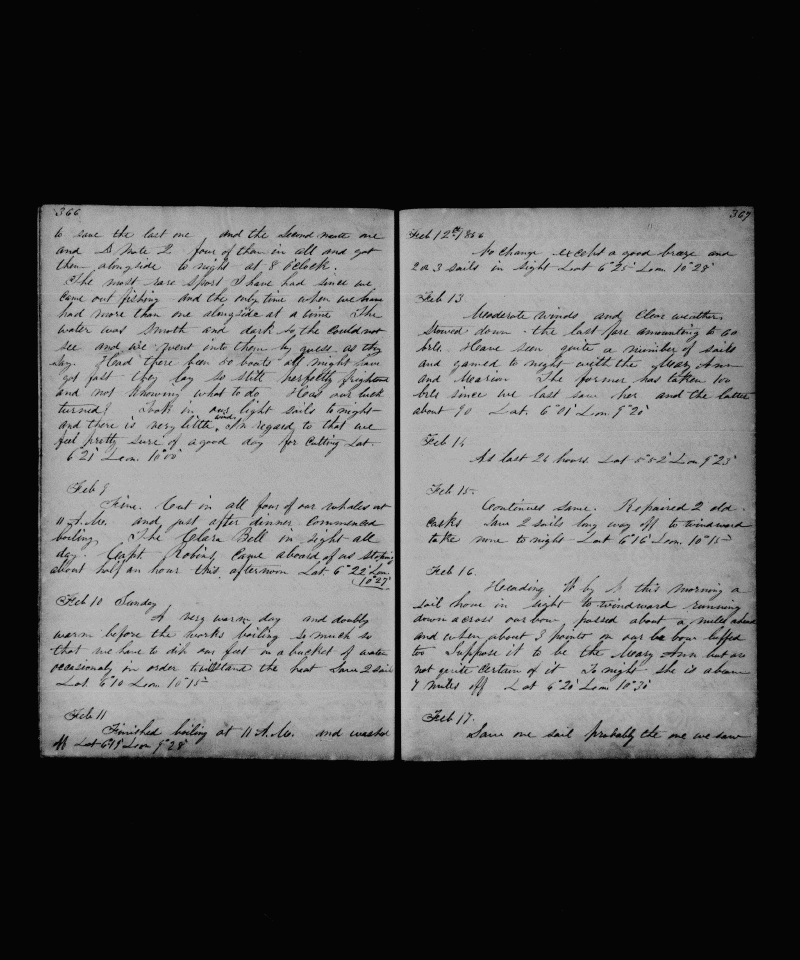 366
to save the last one and the second mate one
and 3d Mate 2 four of them in all and got
them alongside to night at 8 oclock.
The most rare sport I have had since we
came out fishing and the only time when we have
had more than one alongside at a time The
water was smooth and dark so they could not
see and we went into them by guess as they
say. Had there been 50 boats all might have
got fast they lay so still perfectly frighten
and not knowing what to do Has our luck
turned? Took in our light sails to night
and there is very little wind. In regard to that we
feel pretty sure of a good day for cutting Lat.
6°21' Lon. 10°00'
Feb 9
Fine. Cut in all four of our whales at
11 A.M. and just after dinner commenced
boiling The Clara Bell in sight all
day. Capt Robins came aboard of us stoping
about half an hour this afternoon Lat. 6°22' Lon.
10°27'
Feb 10 Sunday
A very warm day and doubly
warm before the works boiling so much so
that we have to dip our feet in a bucket of water
occasionaly in order to withstand the heat Saw 2 sail
Lat. 6°10 Lon 10°15
Feb 11
Finished boiling at 11 A.M. and washed
Lat 6°19' Lon 9°28'
367
Feb 12th/1866
No change except a good breeze and
2 or 3 sails in sight Lat 6°25' Lon 10°28'
Feb 13
Moderate winds and clear weather
Stowed down the last fare amounting to 60
brls. Have seen quite a number of sails
and gamed to night with the Mary Ann
and Marion The former has taken 100
brls since we last saw her and the latter
about 90 Lat. 6°01' Lon. 9°20'
Feb 14
As last 24 hours Lat 5°52' Lon 9°23'
Feb 15
Continues same. Repaired 2 old
casks Saw 2 sails long way off to windward
take none to night Lat 6°16' Lon. 10°15
Feb 16.
Heading W by N this morning a
sail hove in sight to windward running
down across our bow passed about a miles ahead
and when about 3 points on our bow luffed
too Suppose it to be the Mary Ann but are
not quite certain of it To night she is about
7 miles off Lat 6°20' Lon 10°30'
Feb 17.
Saw one sail probably the one we saw